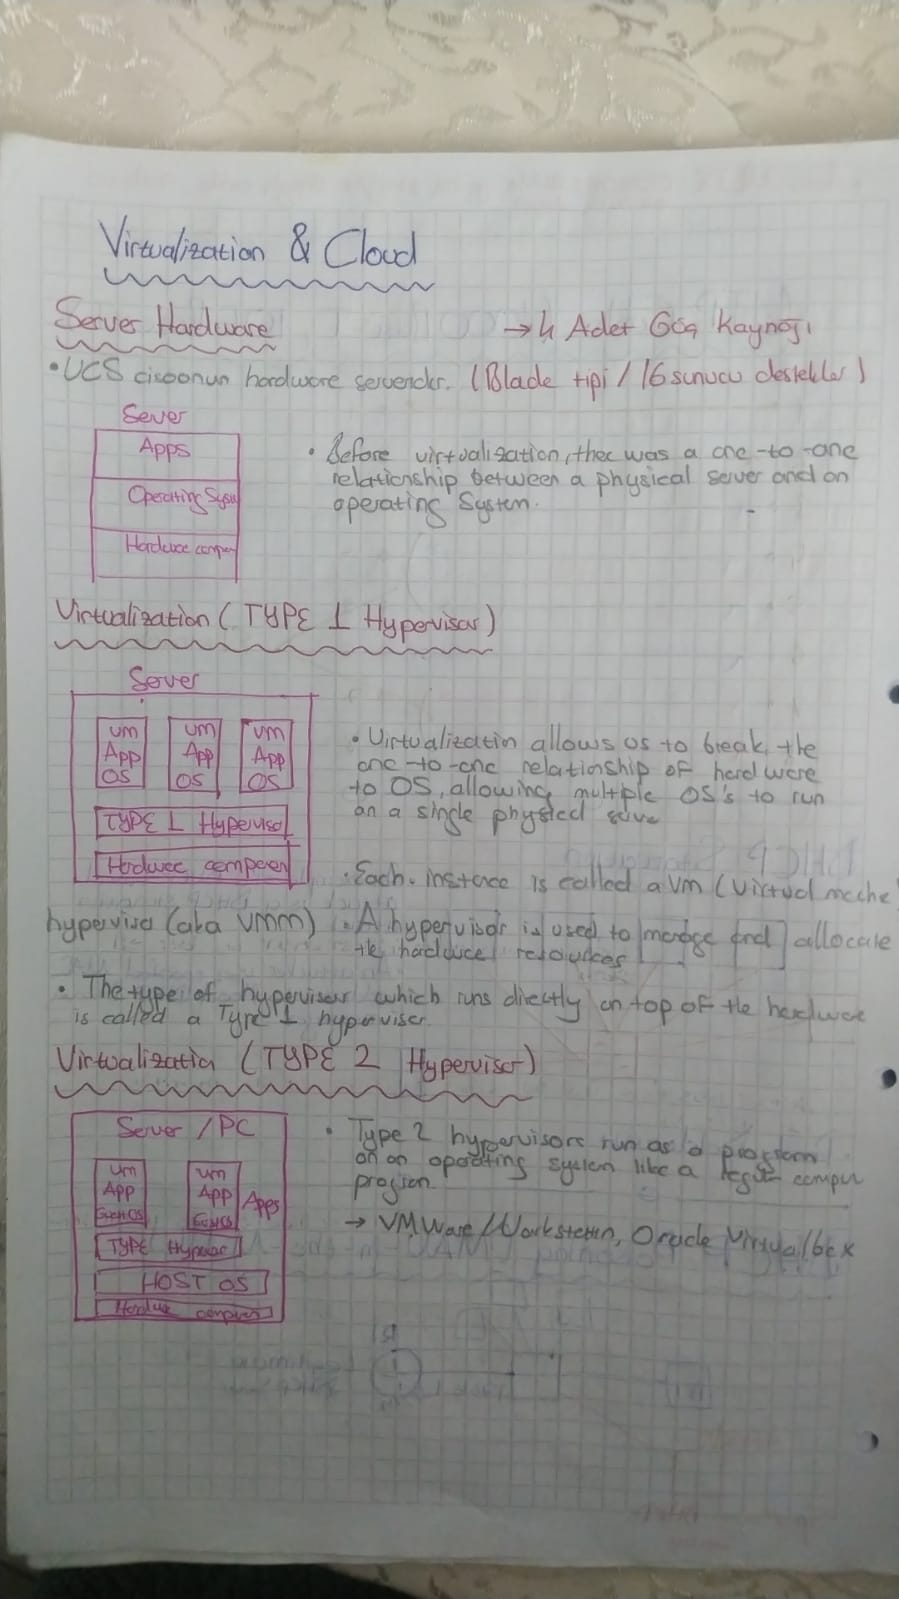 Virtualization & Cloud
Server Hardware
→ 4 Adet Güç Kaynağı
• UCS cisconun hardware serverıdır. (Blade tipi / 16 sunucu destekler)
Sever
Apps
Operating Sysm
Hardware compon
• Before virtualization, ther was a one-to-one
relationship between a physical server and an
operating System.
Virtualization (TYPE 1 Hypervisor)
Server
VM
App
OS
VM
App
OS
VM
App
OS
TYPE 1 Hypervisor
Hardware componen
• Virtualizatin allows us to break, the
one-to-one relationship of hardware
to OS, allowing multiple OS's to run
on a single physical serve
• Each instance is called a VM (Virtual mache
hypervisor (aka VMM)
• A hypervisor is used to manage and allocate
the hardware resources
• The type of hypervisor which runs directly on top of the hardware
is called a Type 1 hypervisor
Virtualization (TYPE 2 Hypervisor)
Server / PC
VM
App
Guest OS
VM
App
Apps
TYPE
HOST OS
Hardware
• Type 2 hypervisors run as a program
on an operating system like a regular compur
program.
→ VMWare/Workstation, Oracle Virtualbox